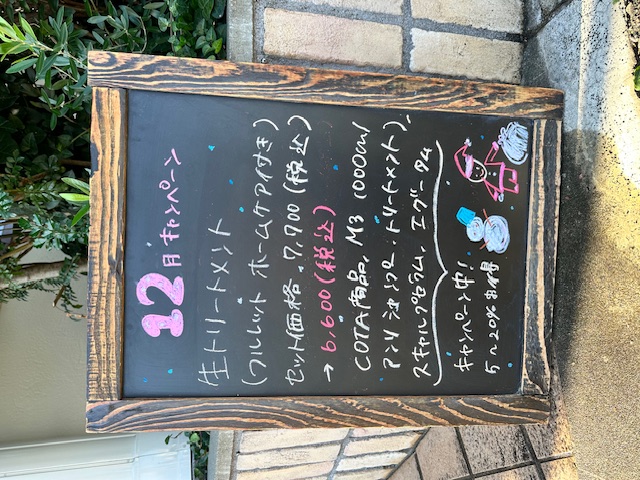 12月キャンペーン
生トリートメント
(フルセット ホームケア付き)
セット価格 7,700(税込)
→ 6,600(税込)
COTA商品、M3 1000ml
(シャンプー・トリートメント)、
スキャルプセラム、エグータム
キャンペーン中!
5〜20%お得